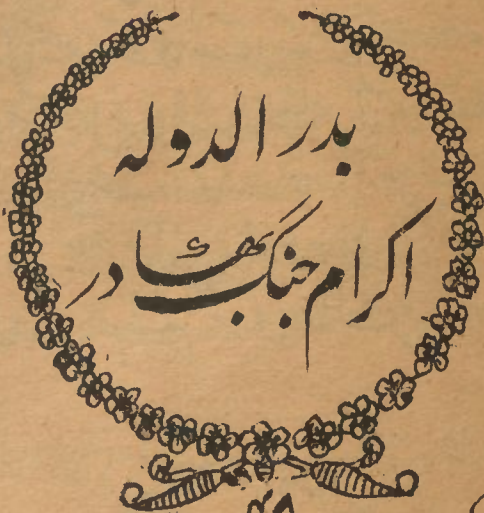 بدر الدولہ
اکرام جنگ بہادر